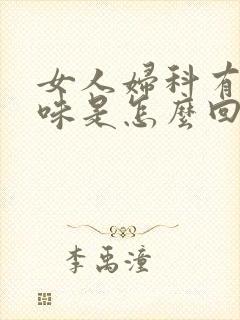 女人婦科有
味是怎麼回
李禹潼